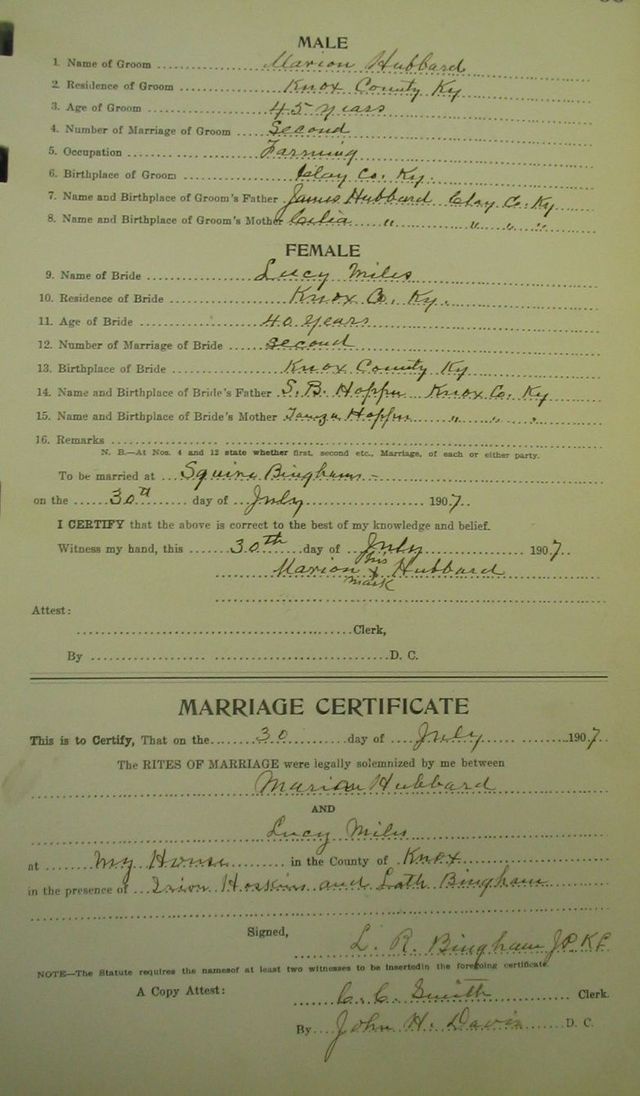 MALE
1. Name of Groom Marion Hubbard
2. Residence of Groom Knox County Ky
3. Age of Groom 45 years
4. Number of Marriage of Groom Second
5. Occupation Farming
6. Birthplace of Groom Clay Co. Ky.
7. Name and Birthplace of Groom's Father James Hubbard Clay Co. Ky
8. Name and Birthplace of Groom's Mother Celia " " " "
FEMALE
9. Name of Bride Lucy Miles
10. Residence of Bride Knox Co. Ky.
11. Age of Bride 40 years
12. Number of Marriage of Bride second
13. Birthplace of Bride Knox County Ky
14. Name and Birthplace of Bride's Father S. B. Knox Co. Ky
15. Name and Birthplace of Bride's Mother " " "
16. Remarks
N. B.—At Nos. 4 and 12 state whether first, second etc., Marriage, of each or either party.
To be married at Squire Binghams
on the 30th day of July 1907.
I CERTIFY that the above is correct to the best of my knowledge and belief.
Witness my hand, this 30th day of July 1907.
his
Marion X Hubbard
mark
Attest:
Clerk,
By D. C.
MARRIAGE CERTIFICATE
This is to Certify, That on the 30 day of July 1907.
The RITES OF MARRIAGE were legally solemnized by me between
Marion Hubbard
AND
Lucy Miles
at My Home in the County of Knox
in the presence of Hoskins and Bingham
Signed,
L. R. Bingham J.P.K.C.
NOTE—The Statute requires the namesof at least two witnesses to be insertedin the foregoing certificate.
A Copy Attest:
C. C. Smith Clerk.
By John H. Davis D. C.